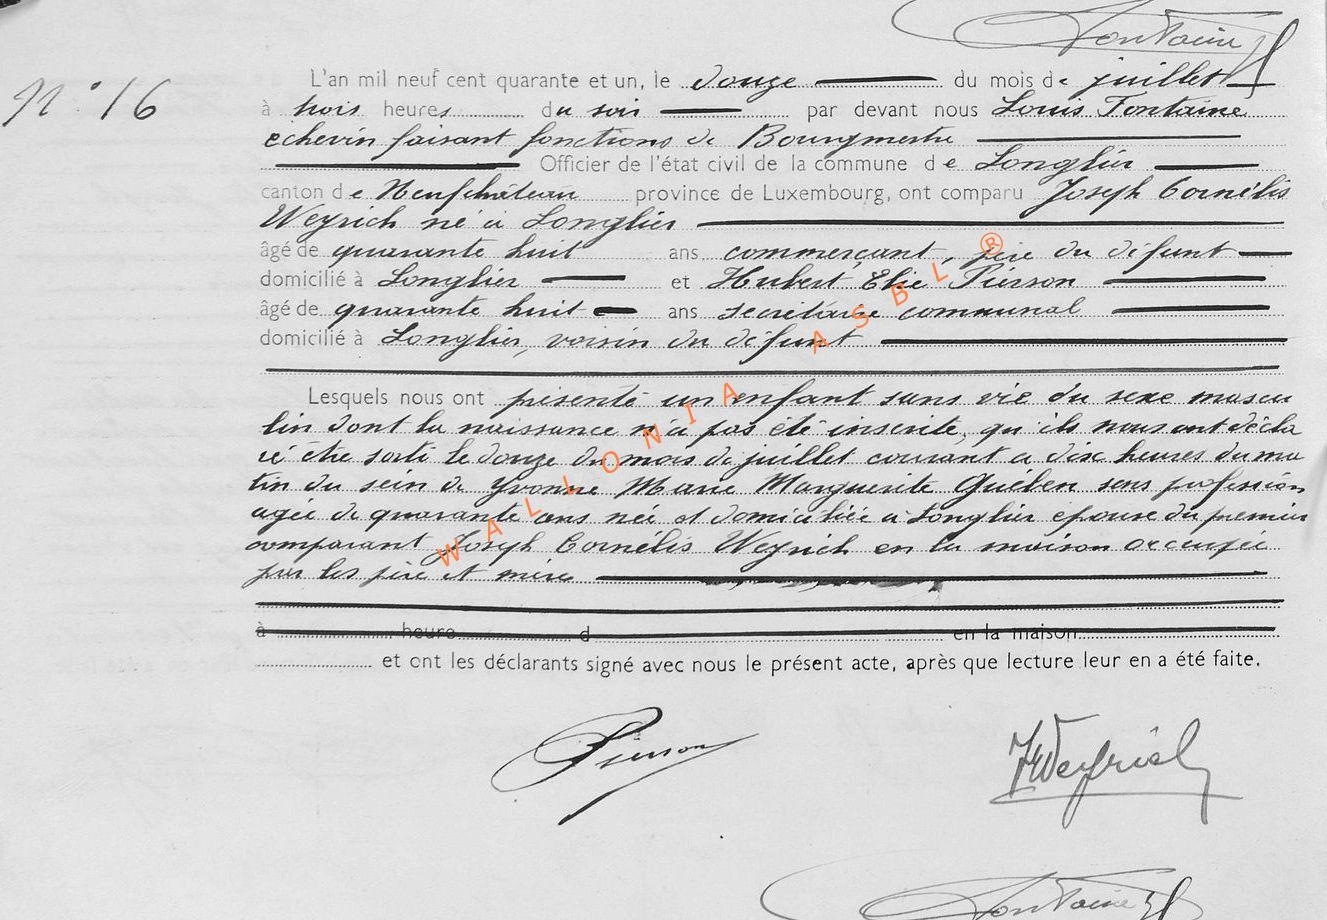 Fontaine
L'an mil neuf cent quarante et un, le douze du mois de juillet
N° 16
à trois heures du soir par devant nous Louis Fontaine
echevin faisant fonctions de Bourgmestre
Officier de l'état civil de la commune de Longlier
canton de Neufchâteau province de Luxembourg, ont comparu Joseph Cornélis
Weyrich né à Longlier
âgé de quarante huit ans commerçant, père du défunt
domicilié à Longlier et Hubert Elie Pierson
âgé de quarante huit ans secrétaire communal
domicilié à Longlier, voisin du défunt
Lesquels nous ont présenté un enfant sans vie du sexe mascu
lin dont la naissance n'a pas été inscrite, qu'ils nous ont décla
ré être sorti le douze du mois de juillet courant a dix heures du ma
tin du sein de Yvonne Marie Marguerite Guében sans profession
agée de quarante ans née et domiciliée à Longlier epouse du premier
comparant Joseph Cornélis Weyrich en la maison occupée
par les père et mère
à heure d en la maison
et ont les déclarants signé avec nous le présent acte, après que lecture leur en a été faite.
Pierson
JWeyrich
Fontaine
WALLONIA ASBL ®